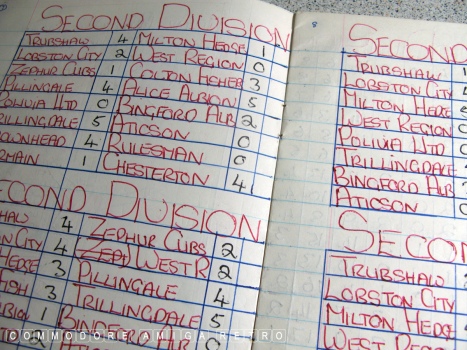 SECOND DIVISION
TRUBSHAW 4 MILTON HEDGE 1
LOBSTON CITY 2 WEST REGION 0
ZEPHUR CUBS 1 COLTON FISHER 3
PILLINGALE 4 ALICE ALBION 5
POLIVIA UTD 0 BINGFORD ALB 2
TRILLINGDALE 5 ATICSON 0
OWNHEAD 4 RULESMAN 0
RMAIN 1 CHESTERTON 4
ECOND DIVISION
HAW 4 ZEPHUR CUBS 2
N CITY 4 WEST R 2
HEDGE 3 PILLINGALE 4
FISH 3 TRILLINGDALE 5
1 BINGFORD ALB
2 ATICSON
8
SECOND
TRUBSHAW
LOBSTON CITY
MILTON HEDGE
WEST REGION
POLIVIA UTD
TRILLINGDALE
BINGFORD ALB
ATICSON
SECON
TRUBSHAW
LOBSTON CITY
MILTON HEDGE
WEST REG
COMMODORE AMIGA RETRO